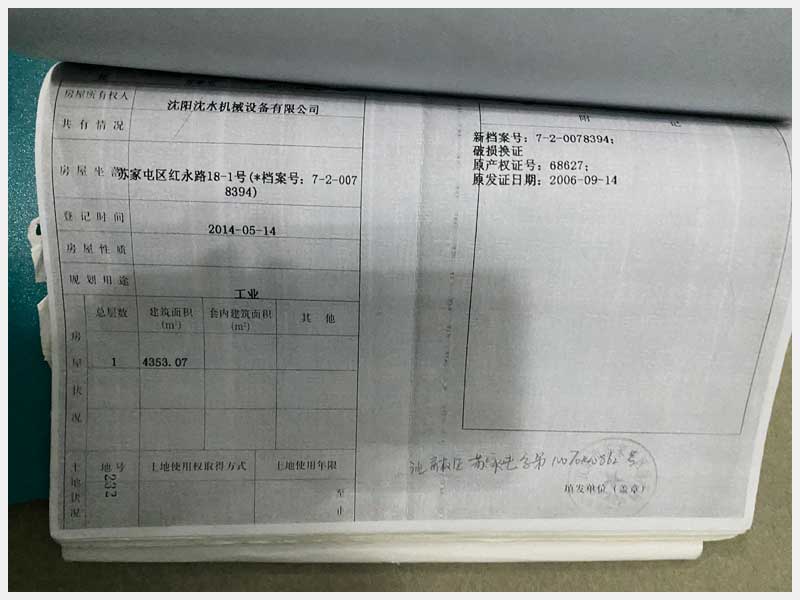 房屋所有权人 沈阳沈水机械设备有限公司
共有情况
房屋坐落 苏家屯区红永路18-1号(*档案号：7-2-007
8394)
登记时间 2014-05-14
房屋性质
规划用途 工业
房屋状况
总层数 建筑面积(m²) 套内建筑面积(m²) 其他
1 4353.07
土地状况
地号 土地使用权取得方式 土地使用年限
232
至
止
附 记
新档案号：7-2-0078394；
破损换证
原产权证号：68627；
原发证日期：2006-09-14
填发单位（盖章）